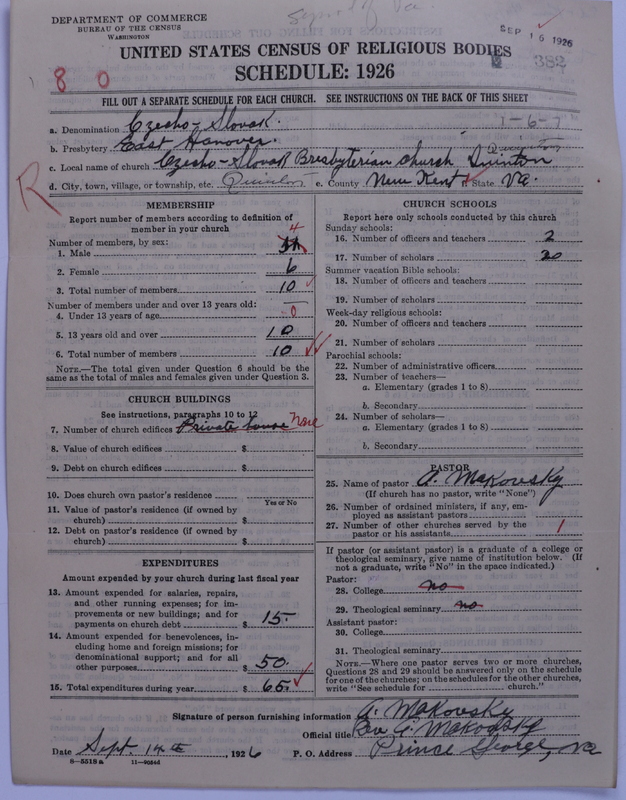 DEPARTMENT OF COMMERCE
BUREAU OF THE CENSUS
WASHINGTON
SEP 16 1926
382
UNITED STATES CENSUS OF RELIGIOUS BODIES
SCHEDULE: 1926
8 0
FILL OUT A SEPARATE SCHEDULE FOR EACH CHURCH. SEE INSTRUCTIONS ON THE BACK OF THIS SHEET
1-6-7
a. Denomination Czecho-Slovak.
b. Presbytery East Hanover.
c. Local name of church Czecho-Slovak Presbyterian church Quinton
d. City, town, village, or township, etc. Quinton e. County New Kent f. State Va.
R
MEMBERSHIP
Report number of members according to definition of
member in your church
Number of members, by sex:
1. Male 4
2. Female 6
3. Total number of members 10
Number of members under and over 13 years old:
4. Under 13 years of age 0
5. 13 years old and over 10
6. Total number of members 10
NOTE.—The total given under Question 6 should be the
same as the total of males and females given under Question 3.
CHURCH BUILDINGS
See instructions, paragraphs 10 to 12
7. Number of church edifices Private house None
8. Value of church edifices $
9. Debt on church edifices $
10. Does church own pastor's residence
Yes or No
11. Value of pastor's residence (if owned by
church) $
12. Debt on pastor's residence (if owned by
church) $
EXPENDITURES
Amount expended by your church during last fiscal year
13. Amount expended for salaries, repairs,
and other running expenses; for im-
provements or new buildings; and for
payments on church debt $ 15.
14. Amount expended for benevolences, in-
cluding home and foreign missions; for
denominational support; and for all
other purposes $ 50.
15. Total expenditures during year $ 65.
CHURCH SCHOOLS
Report here only schools conducted by this church
Sunday schools:
16. Number of officers and teachers 2
17. Number of scholars 20
Summer vacation Bible schools:
18. Number of officers and teachers
19. Number of scholars
Week-day religious schools:
20. Number of officers and teachers
21. Number of scholars
Parochial schools:
22. Number of administrative officers
23. Number of teachers—
a. Elementary (grades 1 to 8)
b. Secondary
24. Number of scholars—
a. Elementary (grades 1 to 8)
b. Secondary
PASTOR
25. Name of pastor A. Makovsky
(If church has no pastor, write "None")
26. Number of ordained ministers, if any, em-
ployed as assistant pastors
27. Number of other churches served by the
pastor or his assistants 1
If pastor (or assistant pastor) is a graduate of a college or
theological seminary, give name of institution below. (If
not a graduate, write "No" in the space indicated.)
Pastor:
28. College no
29. Theological seminary no
Assistant pastor:
30. College
31. Theological seminary
NOTE.—Where one pastor serves two or more churches,
Questions 28 and 29 should be answered only on the schedule
for one of the churches; on the schedules for the other churches,
write "See schedule for church."
Signature of person furnishing information A. Makovsky
Official title Rev. A. Makovsky
Date Sept. 14th 1926 P. O. Address Prince George, Va
8—5518a 11—9056d